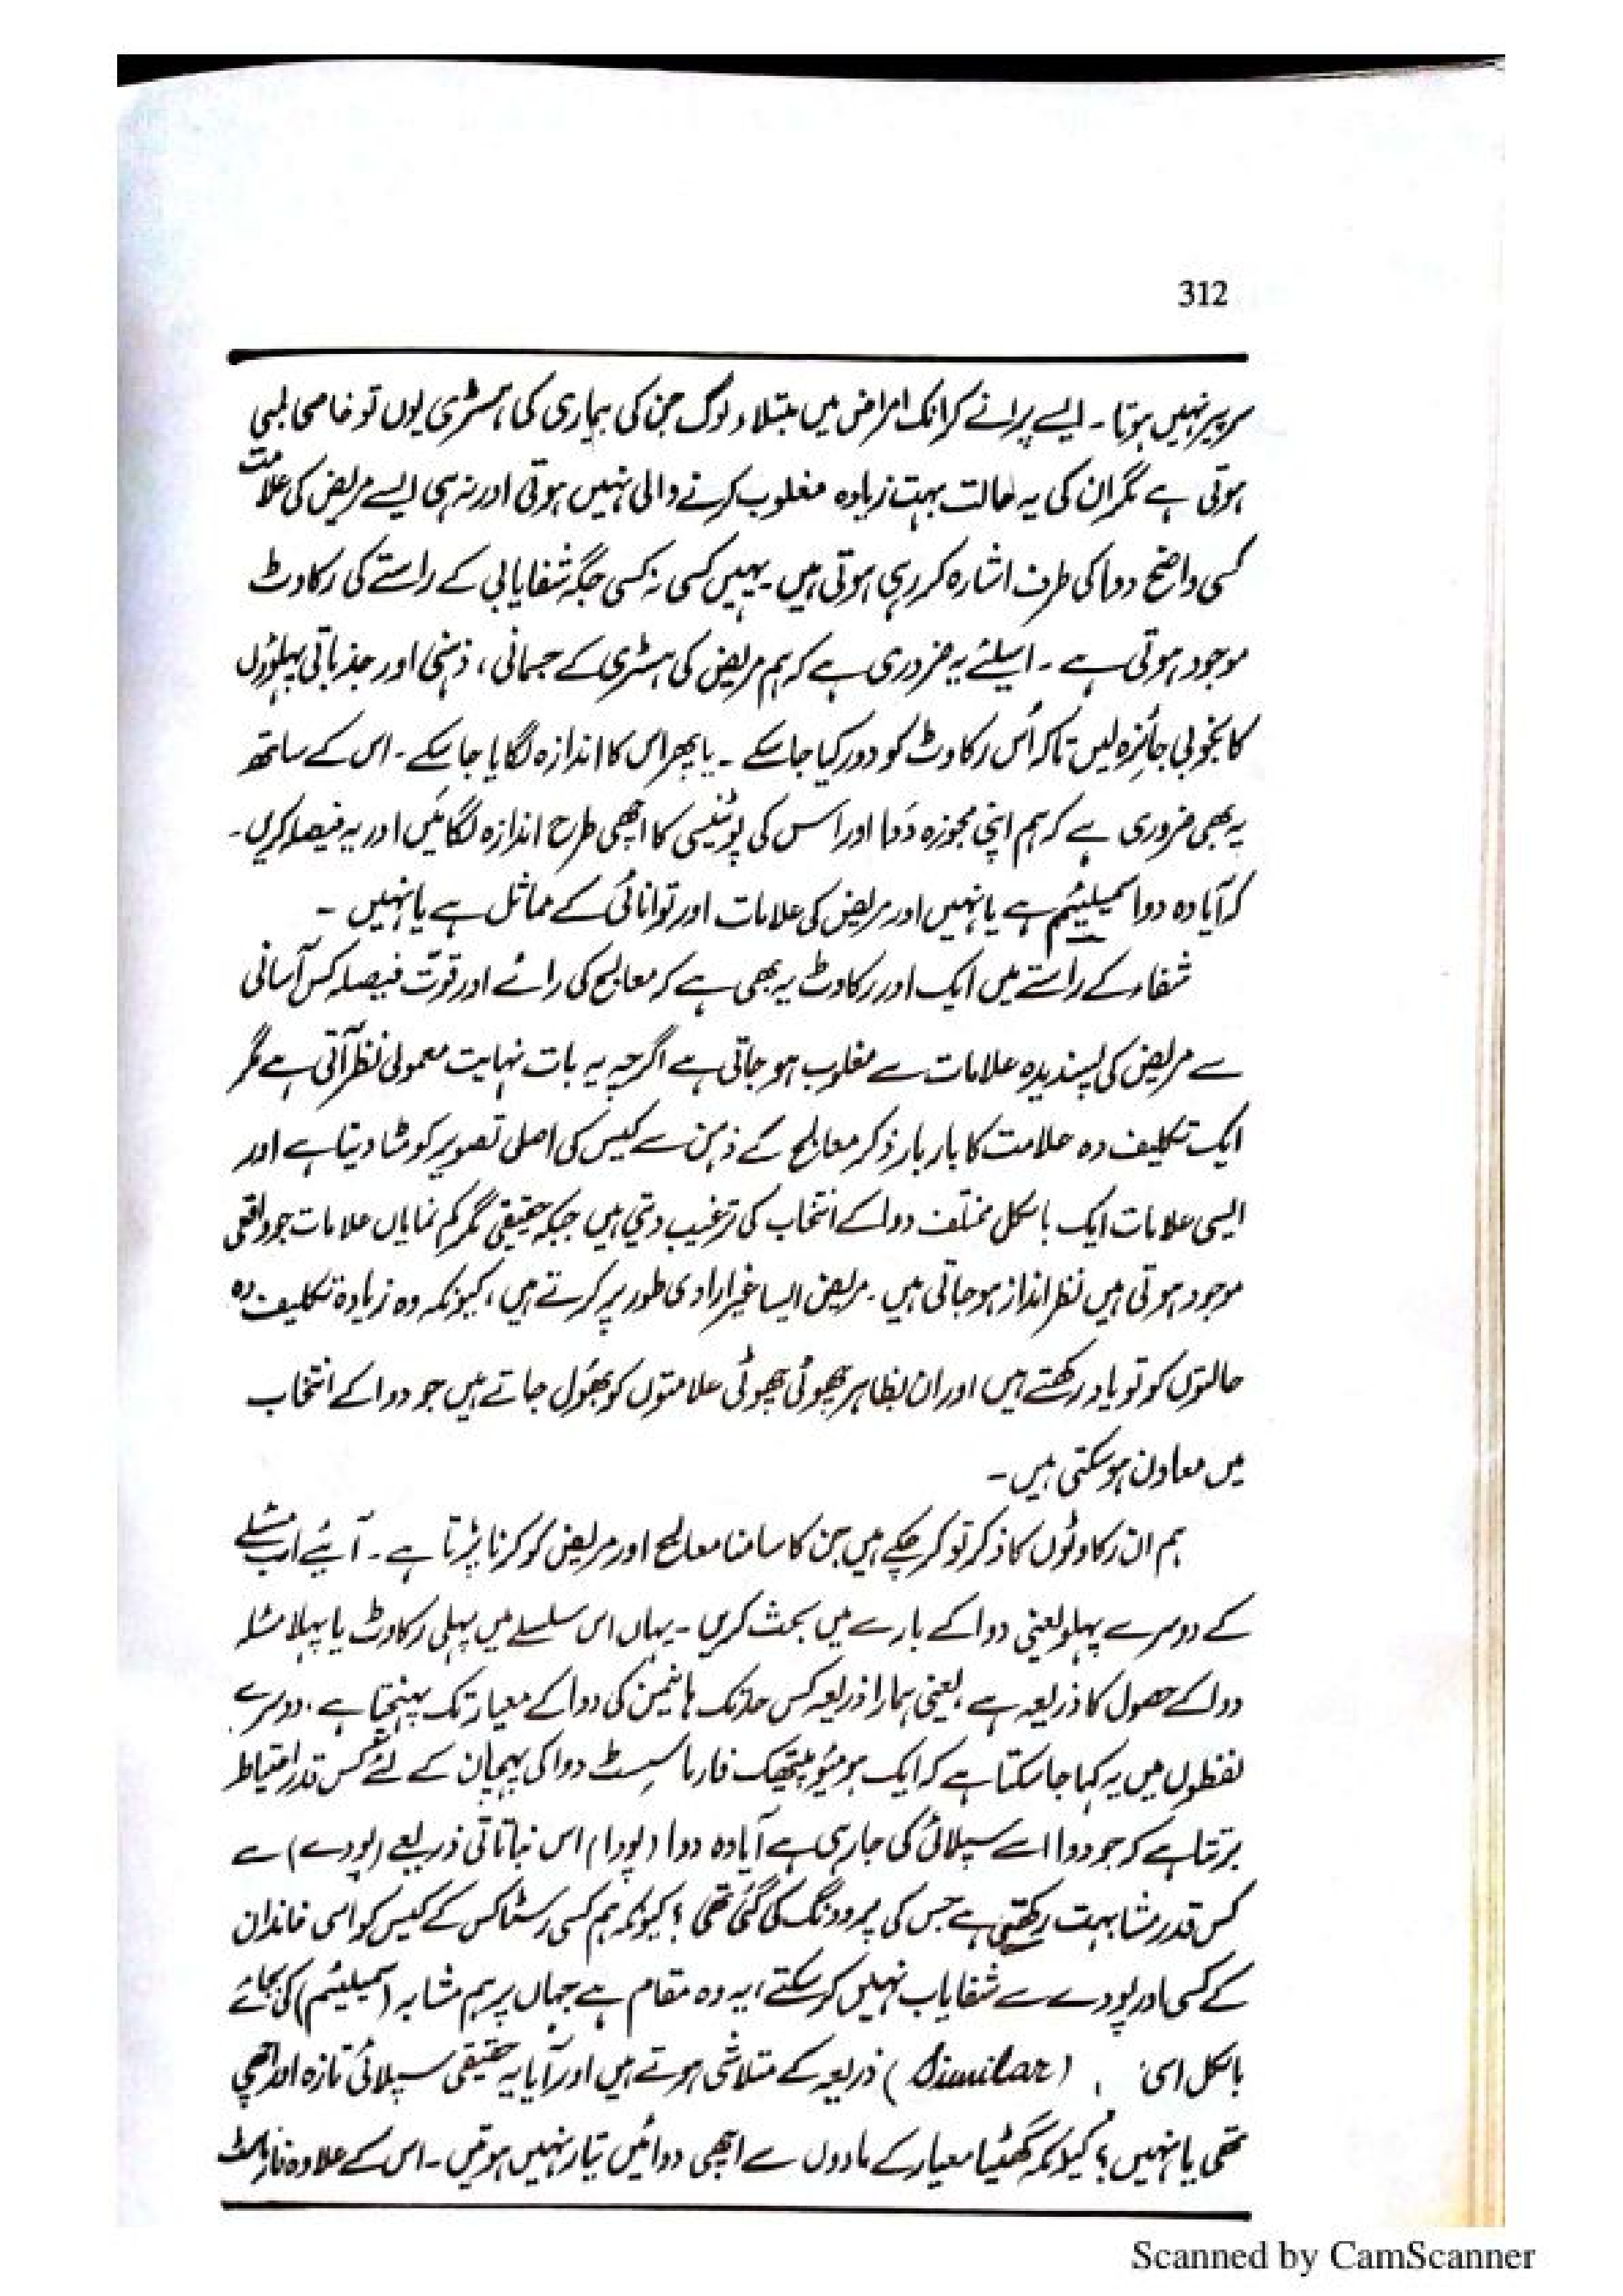 312
سرپیر نہیں ہوتا۔ ایسے پرانے کرانک امراض میں مبتلاء لوگ جن کی بیماری کی ہسٹری یوں تو خاصی لمبی
ہوتی ہے مگر ان کی یہ حالت بہت زیادہ مغلوب کرنے والی نہیں ہوتی اور نہ ہی ایسے مریض کی علامت
کسی واضح دوا کی طرف اشارہ کر رہی ہوتی ہیں۔ یہیں کسی نہ کسی جگہ شفایابی کے راستے کی رکاوٹ
موجود ہوتی ہے۔ اسلئے یہ ضروری ہے کہ ہم مریض کی ہسٹری کے جسمانی، ذہنی اور جذباتی پہلوؤں
کا بخوبی جائزہ لیں تاکہ اُس رکاوٹ کو دور کیا جا سکے۔ یا پھر اس کا اندازہ لگایا جا سکے۔ اس کے ساتھ
یہ بھی ضروری ہے کہ ہم اپنی مجوزہ دَوا اور اس کی پوٹینسی کا اچھی طرح اندازہ لگائیں اور یہ فیصلہ کریں۔
کہ آیا وہ دوا سمیلیئم ہے یا نہیں اور مریض کی علامات اور توانائی کے مماثل ہے یا نہیں ۔
شفاء کے راستے میں ایک اور رکاوٹ یہ بھی ہے کہ معالج کی رائے اور قوّت فیصلہ کس آسانی
سے مریض کی پسندیدہ علامات سے مغلوب ہو جاتی ہے اگرچہ یہ بات نہایت معمولی نظر آتی ہے مگر
ایک تکلیف دہ علامت کا بار بار ذکر معالج کے ذہن سے کیس کی اصلی تصویر کو مٹا دیتا ہے اور
ایسی علامات ایک بالکل مختلف دوا کے انتخاب کی ترغیب دیتی ہیں جبکہ حقیقی مگر کم نمایاں علامات جو واقعی
موجود ہوتی ہیں نظر انداز ہو جاتی ہیں۔ مریض ایسا غیر ارادی طور پر کرتے ہیں، کیونکہ وہ زیادہ تکلیف دہ
حالتوں کو تو یاد رکھتے ہیں اور ان بظاہر چھوٹی چھوٹی علامتوں کو بھُول جاتے ہیں جو دوا کے انتخاب
میں معاون ہو سکتی ہیں۔
ہم ان رکاوٹوں کا ذکر تو کر چکے ہیں جن کا سامنا معالج اور مریض کو کرنا پڑتا ہے۔ آئیے اب مسئلے
کے دوسرے پہلو یعنی دوا کے بارے میں بحث کریں۔ یہاں اس سلسلے میں پہلی رکاوٹ یا پہلا مسٔلہ
دوا کے حصول کا ذریعہ ہے، یعنی ہمارا ذریعہ کس حد تک ہانیمن کی دوا کے معیار تک پہنچتا ہے۔ دوسرے
لفظوں میں یہ کہا جا سکتا ہے کہ ایک ہومیوپیتھک فارماسسٹ دوا کی پہچان کے لئے کس قدر احتیاط
برتتا ہے کہ جو دوا اسے سپلائی کی جا رہی ہے آیا وہ دوا (پودا) اس نباتاتی ذریعے (پودے) سے
کس قدر مشابہت رکھتی ہے جس کی پروونگ کی گئی تھی؟ کیونکہ ہم کسی رسٹاکس کے کیس کو اسی خاندان
کے کسی اور پودے سے شفایاب نہیں کر سکتے، یہ وہ مقام ہے جہاں پر ہم مشابہ (سمیلیئم) کی بجائے
بالکل اسی (Similar) ذریعہ کے متلاشی ہوتے ہیں اور آیا یہ حقیقی سپلائی تازہ اور اچھی
تھی یا نہیں؟ کیونکہ گھٹیا معیار کے مادوں سے اچھی دوائیں تیار نہیں ہوتیں۔ اس کے علاوہ
Scanned by CamScanner